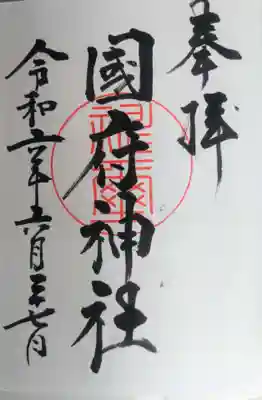 奉拝
國府神社
令和六年六月二十七日